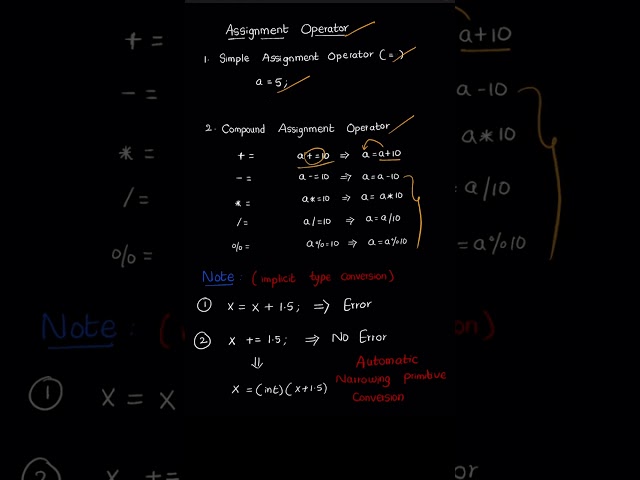 Assignment Operator
1. Simple Assignment Operator (=)
a = 5;
2. Compound Assignment Operator
+= a+=10 ⇒ a=a+10
-= a-=10 ⇒ a=a-10
*= a*=10 ⇒ a=a*10
/= a/=10 ⇒ a=a/10
%= a%=10 ⇒ a=a%10
Note: (implicit type conversion)
1 x = x + 1.5; ⇒ Error
2 x += 1.5; ⇒ No Error
⇓
x = (int)(x+1.5)
Automatic
Narrowing primitive
Conversion
+=
-=
*=
/=
%=
Note: (
1 x = x
2 x +=
a+10
a-10
a*10
a/10
=a%10
on)
or